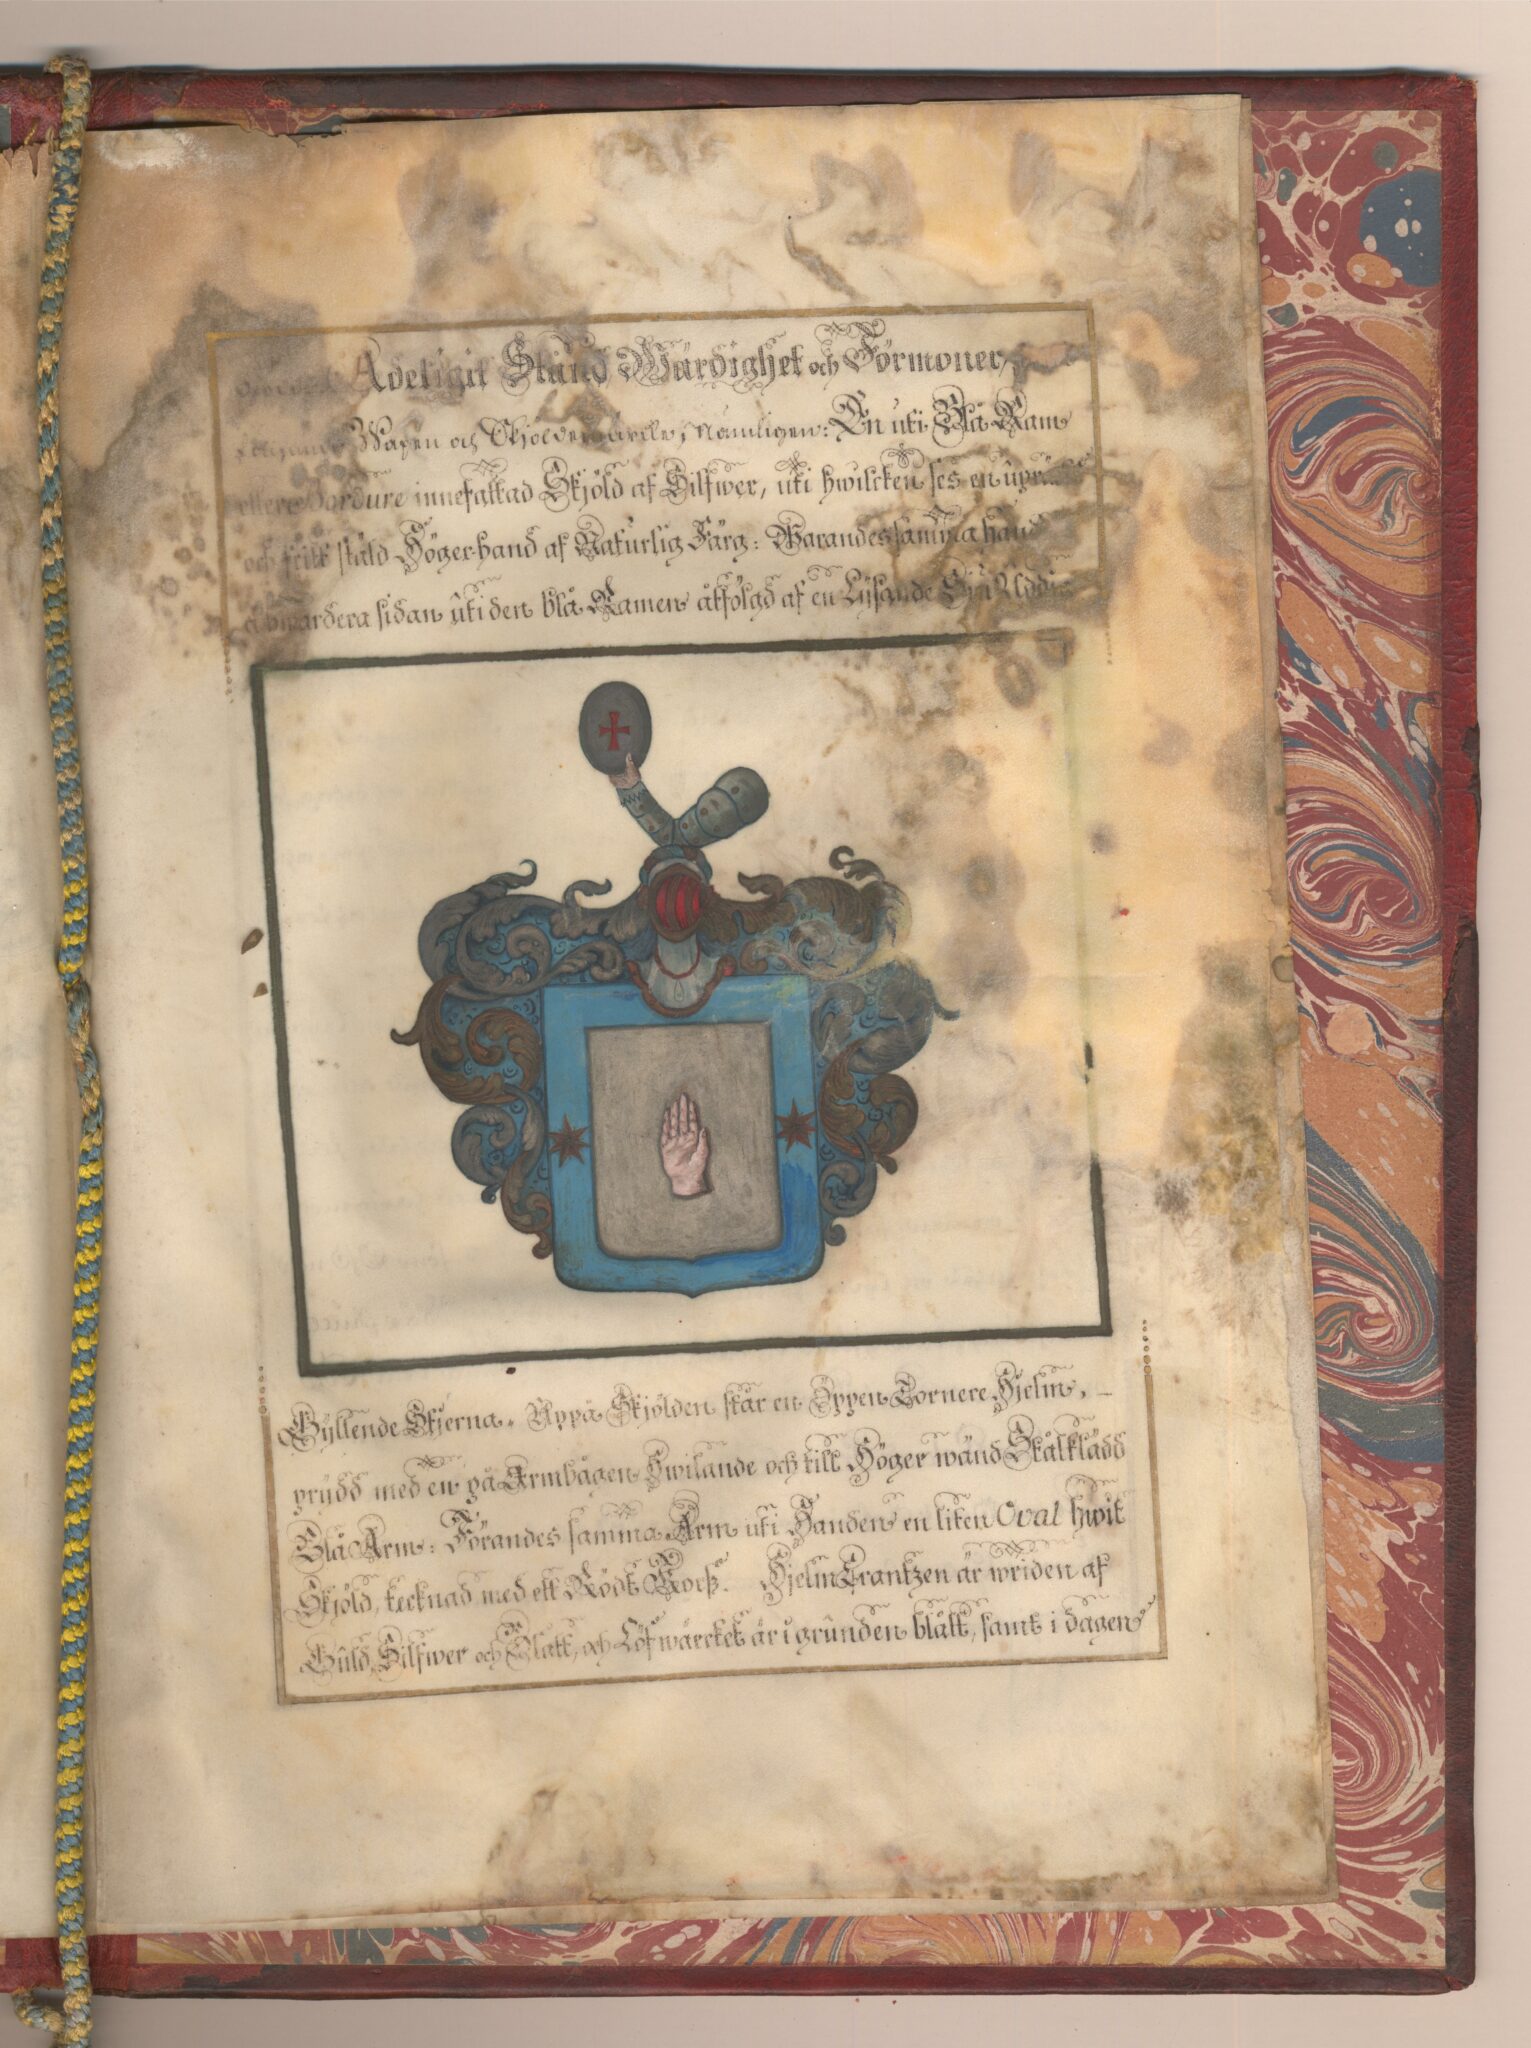 Adeligit Stånd Wärdighet och Förmoner,
Wapen och Skjöldemärcke, Nämligen: En uti Blå Ram
eller Bordure innefattad Skjöld af Silfwer, uti hwilcken ses en
och fritt stäld Höger-hand af Naturlig Färg: Warandes samma hand
å hwardera sidan uti den blå Ramen åtfölgd af en Lysande
Gyllende Stjerna. Uppå Skjölden står en Öppen Tornere Hjelm, –
prydd med en på Armbågen Hwilande och till Höger wänd Stålklädd
Blå Arm: Förandes samma Arm uti Handen en liten Oval hwit
Skjöld, tecknad med ett Rödt Korss. Hjelm Crantzen är wriden af
Guld, Silfwer och Blått, och Löfwärcket är i grunden blått, samt i dagen